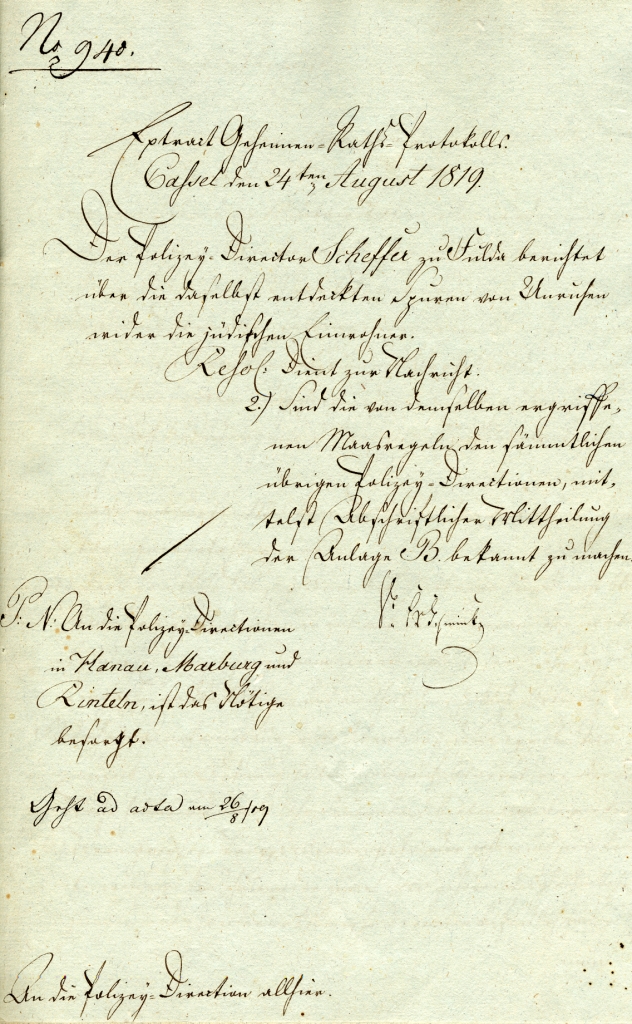 No 940.
Extract Geheimen-Raths-Protokolls.
Cassel den 24ten August 1819.
Der Polizey-Director Scheffer zu Fulda berichtet
über die daselbst entdeckten Spuren von Unruhen
wider die jüdischen Einwohner.
Resol: Dient zur Nachricht.
2.) Sind die von demselben ergriffe-
nen Maasregeln den sämmtlichen
übrigen Polizey-Directionen, mit-
telst Abschriftlicher Mittheilung
der Anlage B. bekannt zu machen.
P: N: An die Polizey-Directionen
in Hanau, Marburg und
Rinteln, ist das Nötige
besorgt.
Geht ad acta am 26/8 19
An die Polizey-Direction allhier.